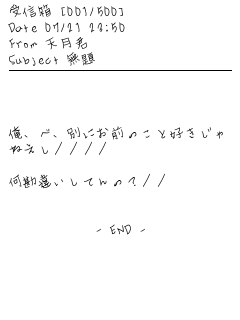 受信箱 [001/500]
Date 07/21 23:50
From 天月君
Subject 無題
俺、べ、別にお前のこと好きじゃ
ねぇし////
何勘違いしてんの?//
- END -